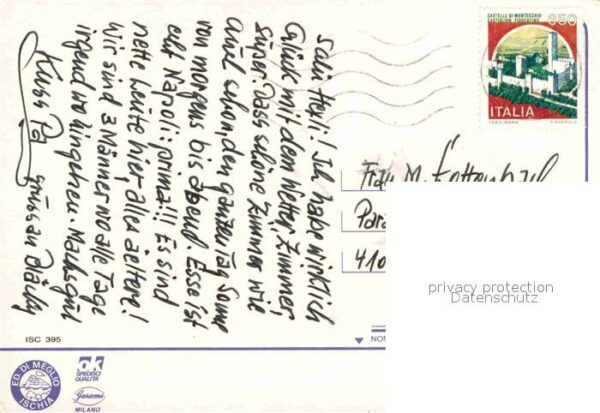 Hexi! Ich habe wirklich
Glück mit dem Wetter, Zimmer,
super, dass schöne Zimmer wie
und schon den ganzen Tag Sonne
von morgens bis abend Esse ist
echt Napoli: prima!!! Es sind
nette Leute hier, alles ältere!
Wir sind 3 Männer wo alle Tage
irgend wo hingehen. Machs gut
Kuss
gruss an
CASTELLO DI MONTECCHIO
CASTIGLION FIORENTINO
650
ITALIA
I.P.Z.S. - ROMA
Frau M.
Para
410
privacy protection
Datenschutz
ISC 395
NON
ED. DI MEGLIO
ISCHIA
ok
SPEDISCI
QUALITÀ
Garami
MILANO